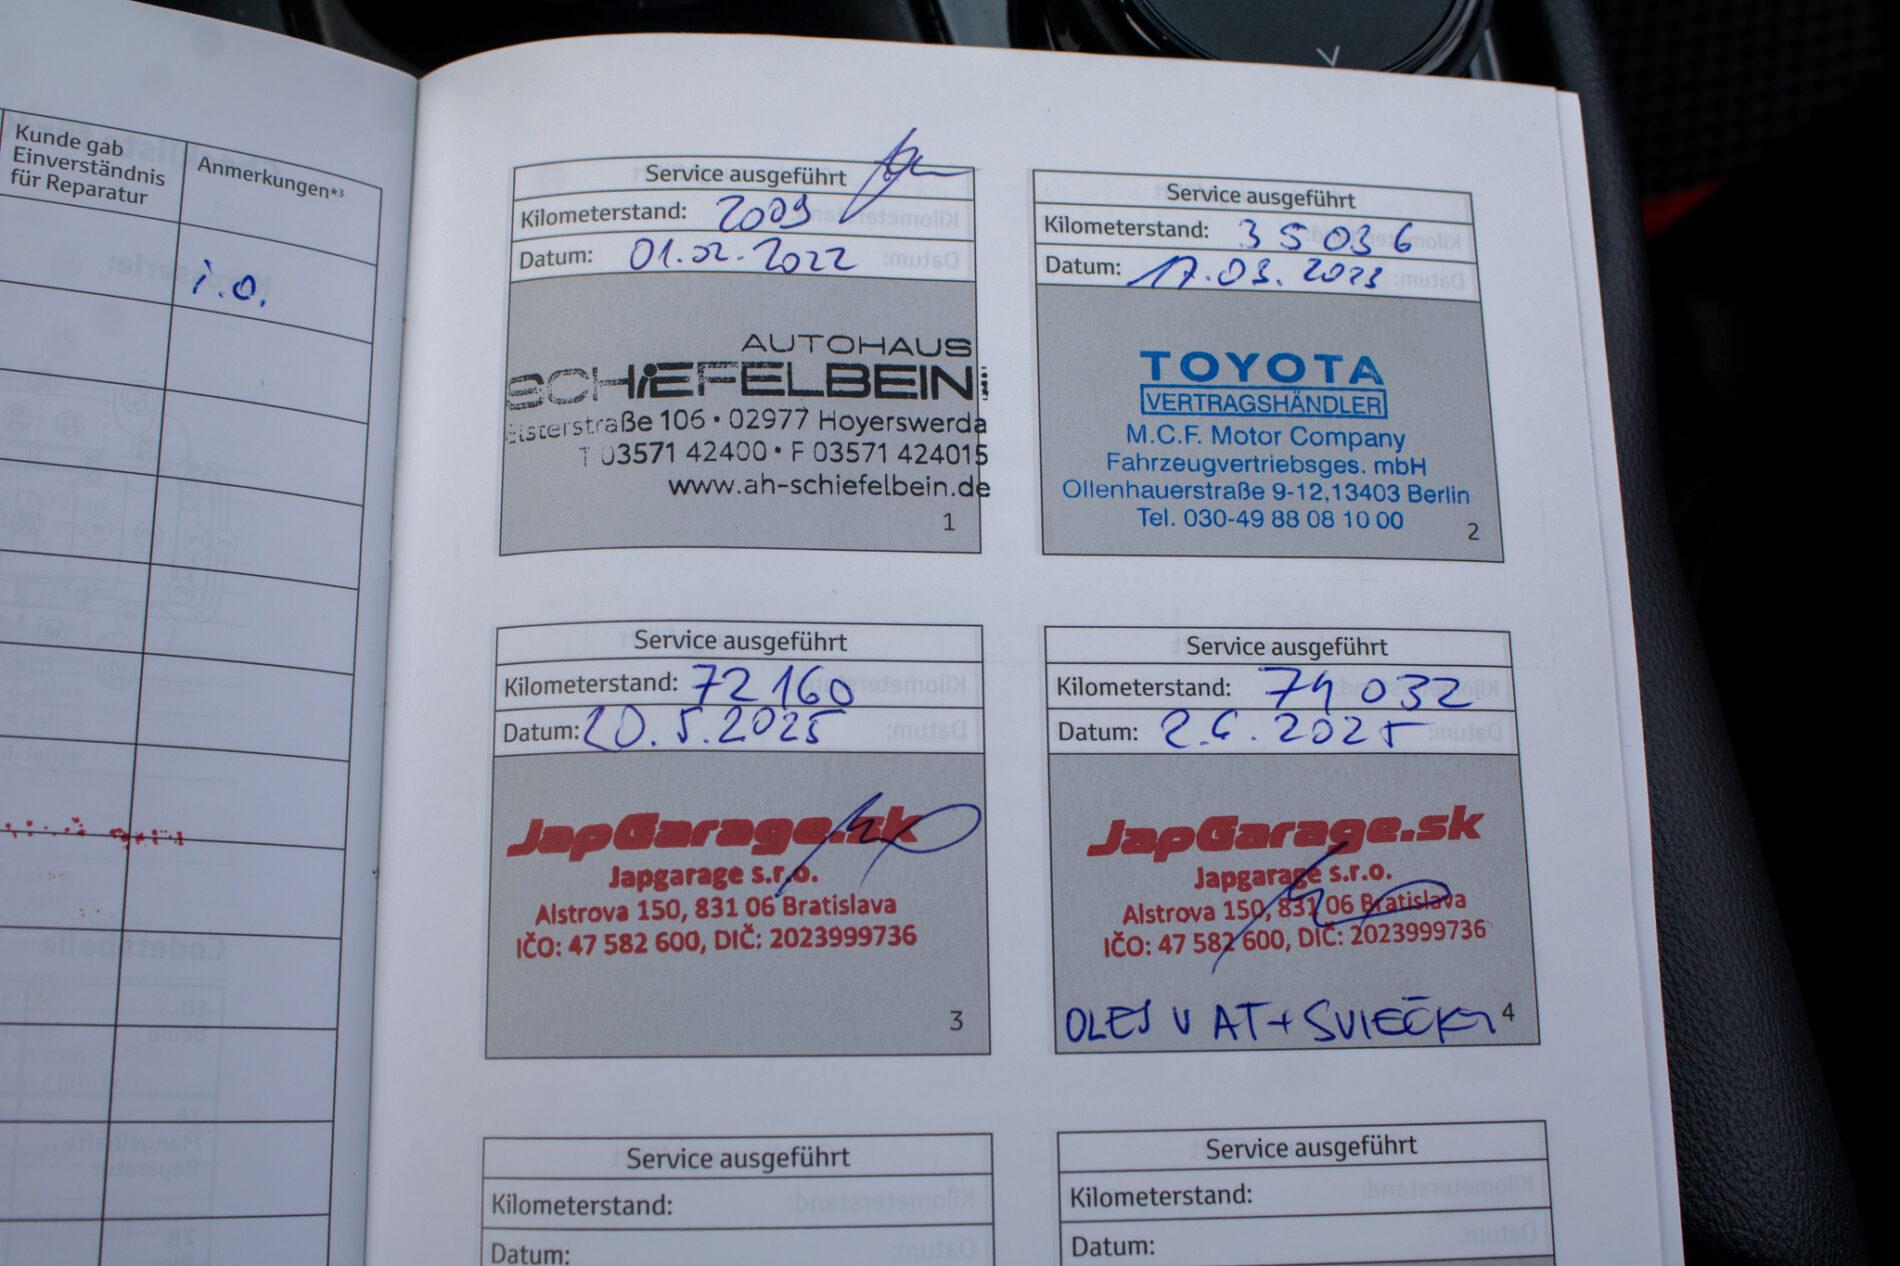 Kunde gab
Einverständnis
für Reparatur
Anmerkungen*³
i.o.
Service ausgeführt
Kilometerstand: 2009
Datum: 01.02.2022
AUTOHAUS
SCHIEFELBEIN
Elsterstraße 106 • 02977 Hoyerswerda
T 03571 42400 • F 03571 424015
www.ah-schiefelbein.de
1
Service ausgeführt
Kilometerstand: 35036
Datum: 17.03.2023
TOYOTA
VERTRAGSHÄNDLER
M.C.F. Motor Company
Fahrzeugvertriebsges. mbH
Ollenhauerstraße 9-12,13403 Berlin
Tel. 030-49 88 08 10 00
2
Service ausgeführt
Kilometerstand: 72160
Datum: 20.5.2025
JapGarage.sk
Japgarage s.r.o.
Alstrova 150, 831 06 Bratislava
IČO: 47 582 600, DIČ: 2023999736
3
Service ausgeführt
Kilometerstand: 74032
Datum: 2.6.2025
JapGarage.sk
Japgarage s.r.o.
Alstrova 150, 831 06 Bratislava
IČO: 47 582 600, DIČ: 2023999736
OLEJ V AT + SVIEČKY
4
Service ausgeführt
Kilometerstand:
Datum:
Service ausgeführt
Kilometerstand:
Datum: